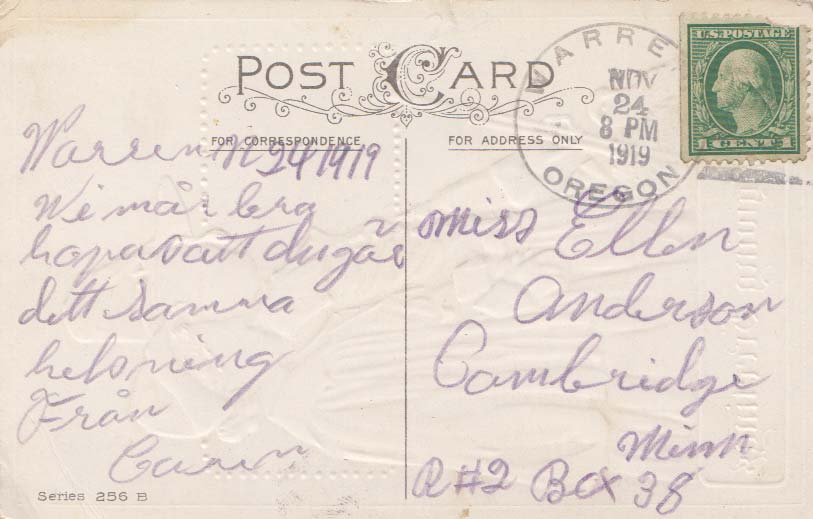 POST CARD
FOR CORRESPONDENCE
FOR ADDRESS ONLY
WARREN
NOV
24
8 PM
1919
OREGON
U.S. POSTAGE
1 CENT 1
Warren N 24 1919
Wi mår bra
hopas att du gås
dett samma
helsning
Från
Miss Ellen
Anderson
Cambridge
Minn
R#2 Box 38
Series 256 B